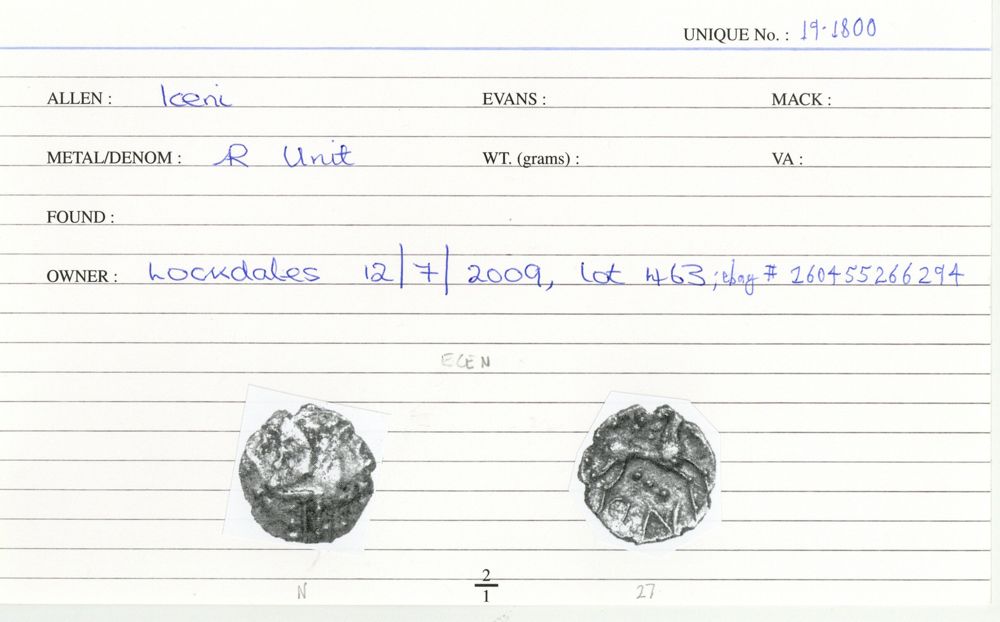 UNIQUE No. : 19·1800
ALLEN : Iceni EVANS : MACK :
METAL/DENOM : AR Unit WT. (grams) : VA :
FOUND :
OWNER : Lockdales 12/7/2009, lot 463; ebay # 160455266294
ECEN
N 2/1 27